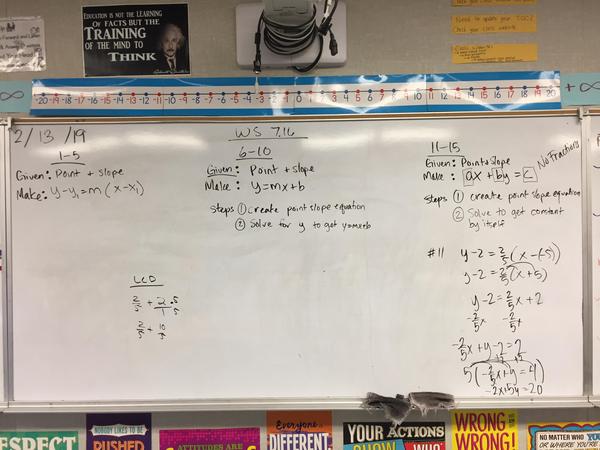 EDUCATION IS NOT THE LEARNING
OF FACTS BUT THE
TRAINING
OF THE MIND TO
THINK
∞ -20 -19 -18 -17 -16 -15 -14 -13 -12 -11 -10 -9 -8 -7 -6 -5 -4 -3 -2 -1 0 1 2 3 4 5 6 7 8 9 10 11 12 13 14 15 16 17 18 19 20 +∞
2/13/19
WS 7.16
1-5
Given: Point + slope
Make: y-y₁=m(x-x₁)
6-10
Given: Point + slope
Make: y=mx+b
Steps ① create point slope equation
② Solve for y to get y=mx+b
11-15
Given: Point + slope
Make: ax + by = c No Fractions
Steps ① create point slope equation
② Solve to get constant
by itself
LCD
2/5 + 2/1 · 5/5
2/5 + 10/5
#11 y-2 = 2/5(x-(-5))
y-2 = 2/5(x+5)
y-2 = 2/5x + 2
-2/5x -2/5x
-2/5x + y - 2 = 2
+2 +2
5(-2/5x + y = 4)
-2x+5y = 20
RESPECT
NOBODY LIKES TO BE
RUSHED
ATTITUDES ARE
Everyone is
DIFFERENT
YOUR ACTIONS
SHOW WHO
WRONG
WRONG!
NO MATTER WHO YOU
OR WHERE YOU'RE